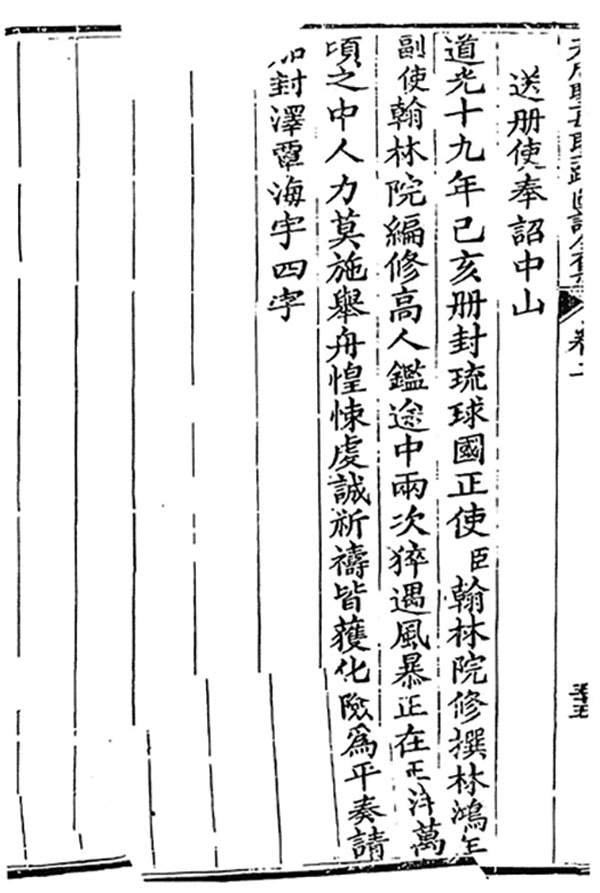 送册使奉詔中山
道光十九年己亥册封琉球國正使臣翰林院修撰林鴻年
副使翰林院編修高人鑑途中兩次猝遇風暴正在正洋萬
頃之中人力莫施舉舟惶悚虔誠祈禱皆獲化險為平奏請
加封澤覃海宇四字